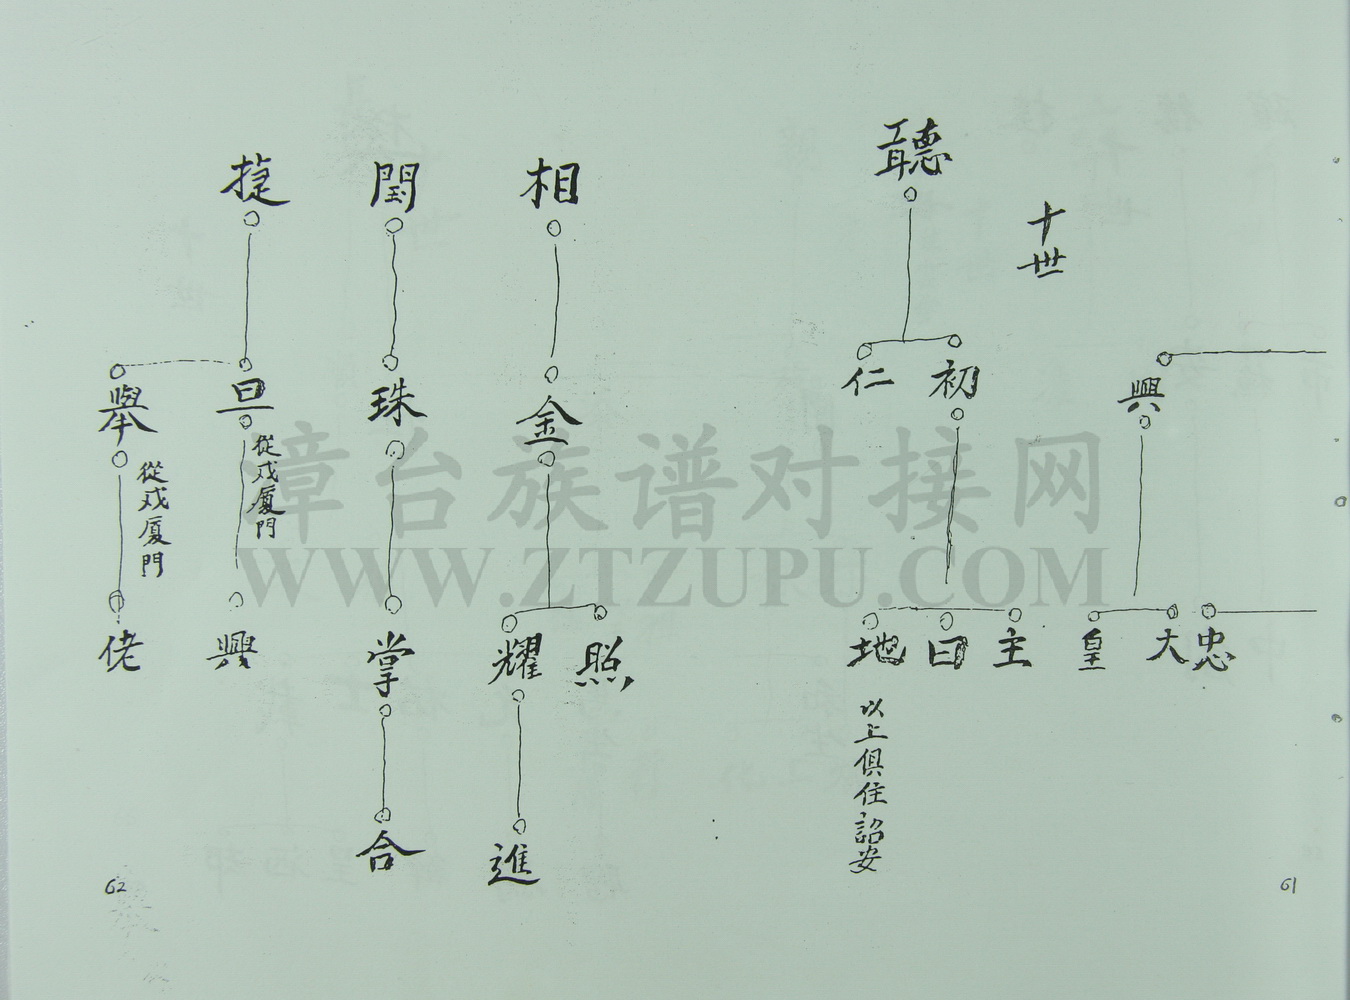 興
忠
大
皇
十世
聽
初
仁
主
曰
地
以上俱住詔安
61
相
金
照
耀
進
閏
珠
掌
合
捷
旦
從戍厦門
興
舉
從戍厦門
佬
62
漳台族谱对接网
WWW.ZTZUPU.COM